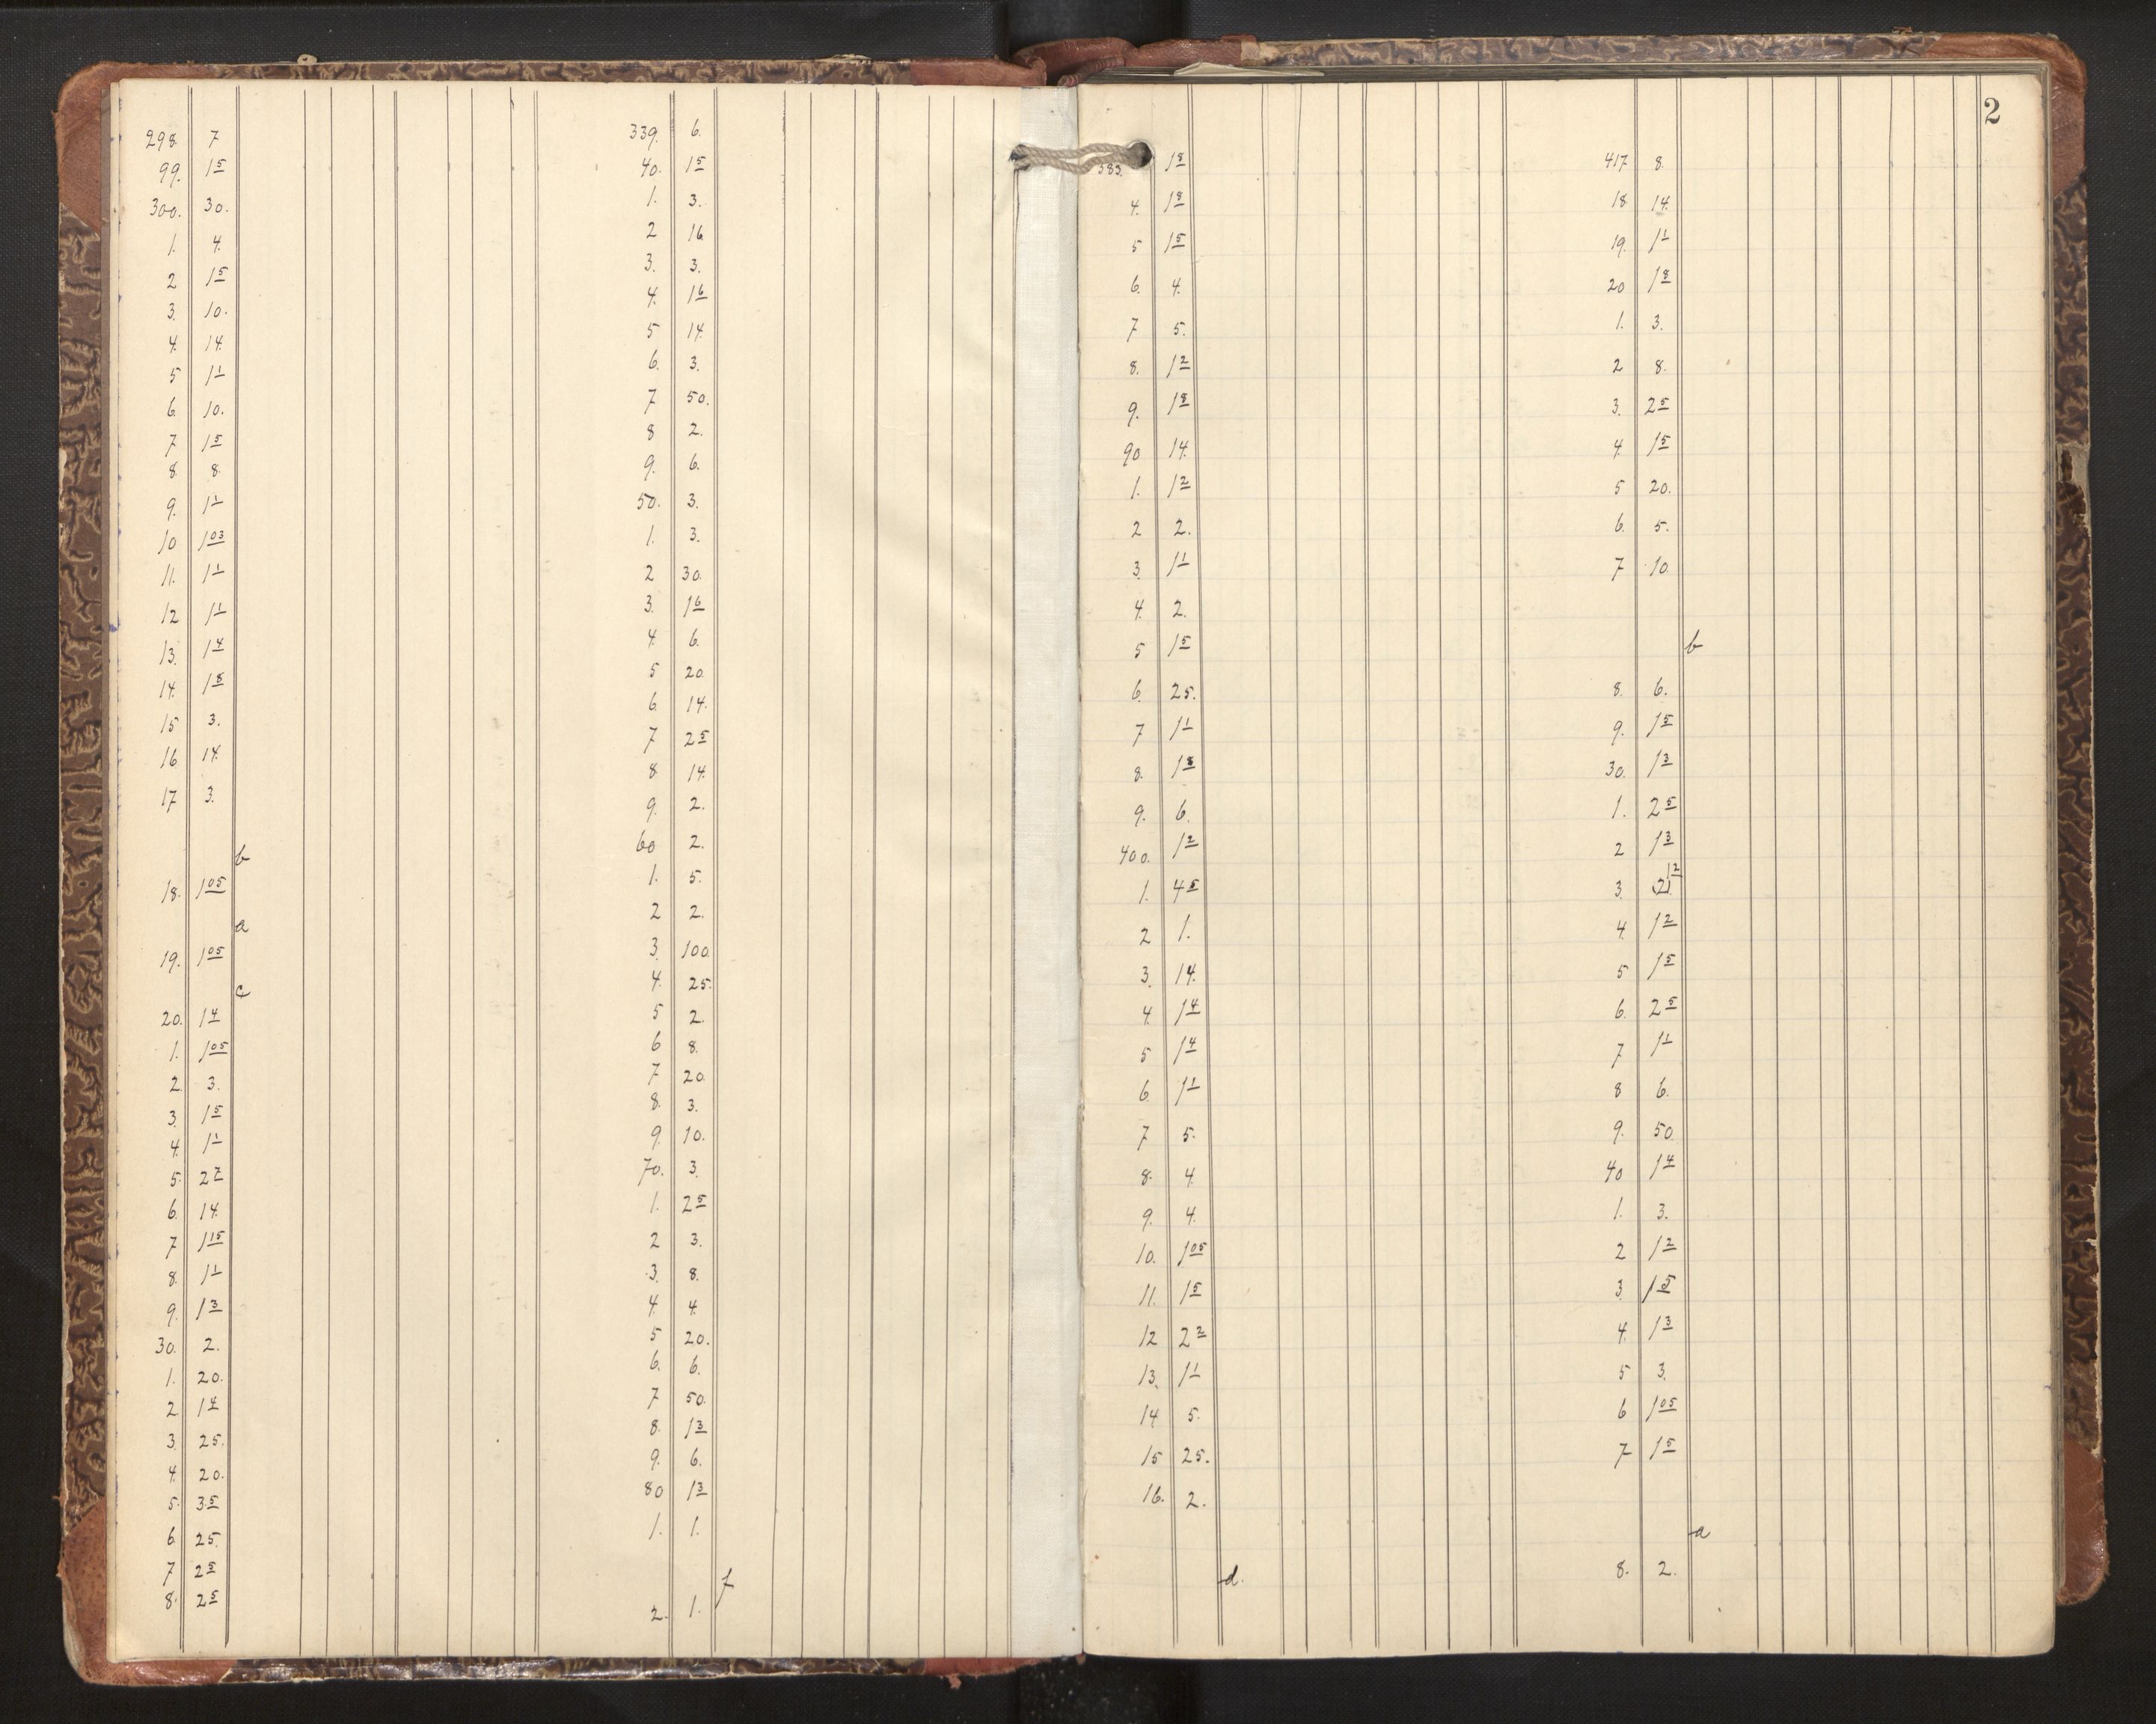 298. 7
99. 1⁵
300. 30.
1. 4.
2 1⁵
3. 10.
4. 14.
5 1¹
6. 10.
7 1⁵
8. 8.
9. 1¹
10 1⁰³
11. 1¹
12 1¹
13. 1⁴
14. 1⁸
15 3.
16 14.
17 3.
b
18. 1⁰⁵
a
19. 1⁰⁵
c
20. 1⁴
1. 1⁰⁵
2. 3.
3. 1⁵
4. 1¹
5. 2²
6. 14.
7 1¹⁵
8. 1¹
9. 1³
30. 2.
1. 20.
2 1⁴
3. 25.
4. 20.
5. 3⁵
6. 25.
7 2⁵
8. 2⁵
339. 6.
40. 1⁵
1. 3.
2 16
3. 3.
4. 1⁶
5 14.
6. 3.
7 50.
8 2.
9. 6.
50. 3.
1. 3.
2 30.
3. 1⁶
4. 6.
5 20.
6. 14.
7 2⁵
8. 14.
9. 2.
60 2.
1. 5.
2 2.
3. 100.
4. 25.
5 2.
6 8.
7 20.
8. 3.
9. 10.
70. 3.
1. 2⁵
2 3.
3. 8.
4. 4.
5 20.
6. 6.
7 50.
8. 1³
9. 6.
80 1³
1. 1.
f
2. 1.
2
383. 1⁸
4. 1⁸
5 1⁵
6. 4.
7 5.
8. 1²
9. 1⁸
90 14.
1. 1²
2 2.
3. 1¹
4. 2.
5 1⁵
6. 25.
7 1¹
8. 1⁸
9. 6.
400. 1²
1. 4⁵
2 1.
3. 14.
4. 1⁴
5 1⁴
6. 1¹
7 5.
8. 4.
9. 4.
10. 1⁰⁵
11. 1⁵
12 2²
13. 1¹
14 5.
15 25.
16. 2.
d.
417 8.
18 14.
19. 1¹
20 1⁸
1. 3.
2 8.
3. 2⁵
4 1⁵
5 20.
6. 5.
7 10.
b
8. 6.
9. 1⁵
30. 1³
1. 2⁵
2 1³
3. 1²
4. 1²
5 1⁵
6. 2⁵
7 1¹
8 6.
9. 50.
40 1⁴
1. 3.
2 1²
3. 1⁵
4. 1³
5 3.
6 1⁰⁵
7 1⁵
a
8. 2.